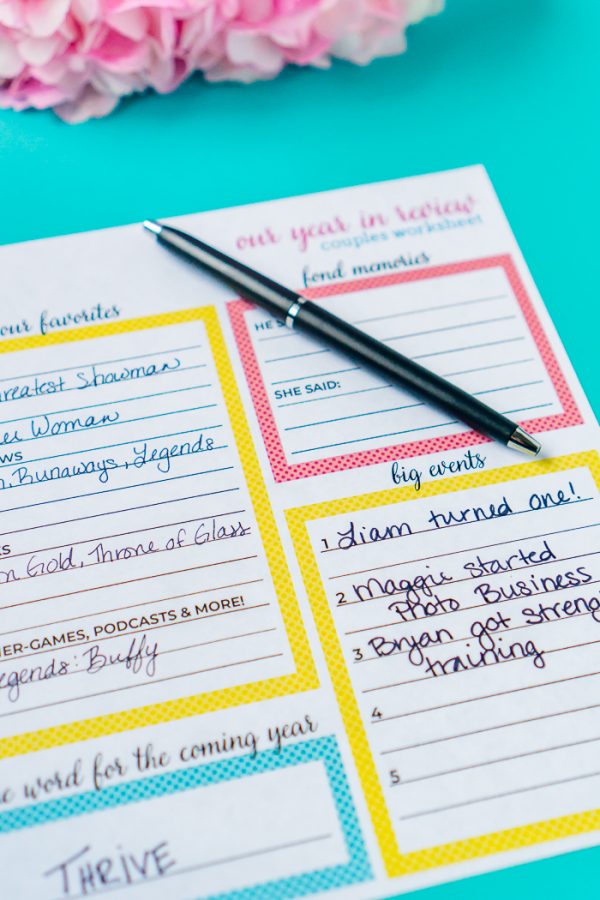 our year in review
couples worksheet
our favorites
Greatest Showman
Woman
Runaways, Legends
Gold, Throne of Glass
GAMES, PODCASTS & MORE!
Legends: Buffy
word for the coming year
THRIVE
fond memories
HE
SHE SAID:
big events
1 Liam turned one!
2 Maggie started
Photo Business
3 Bryan got
training
4
5